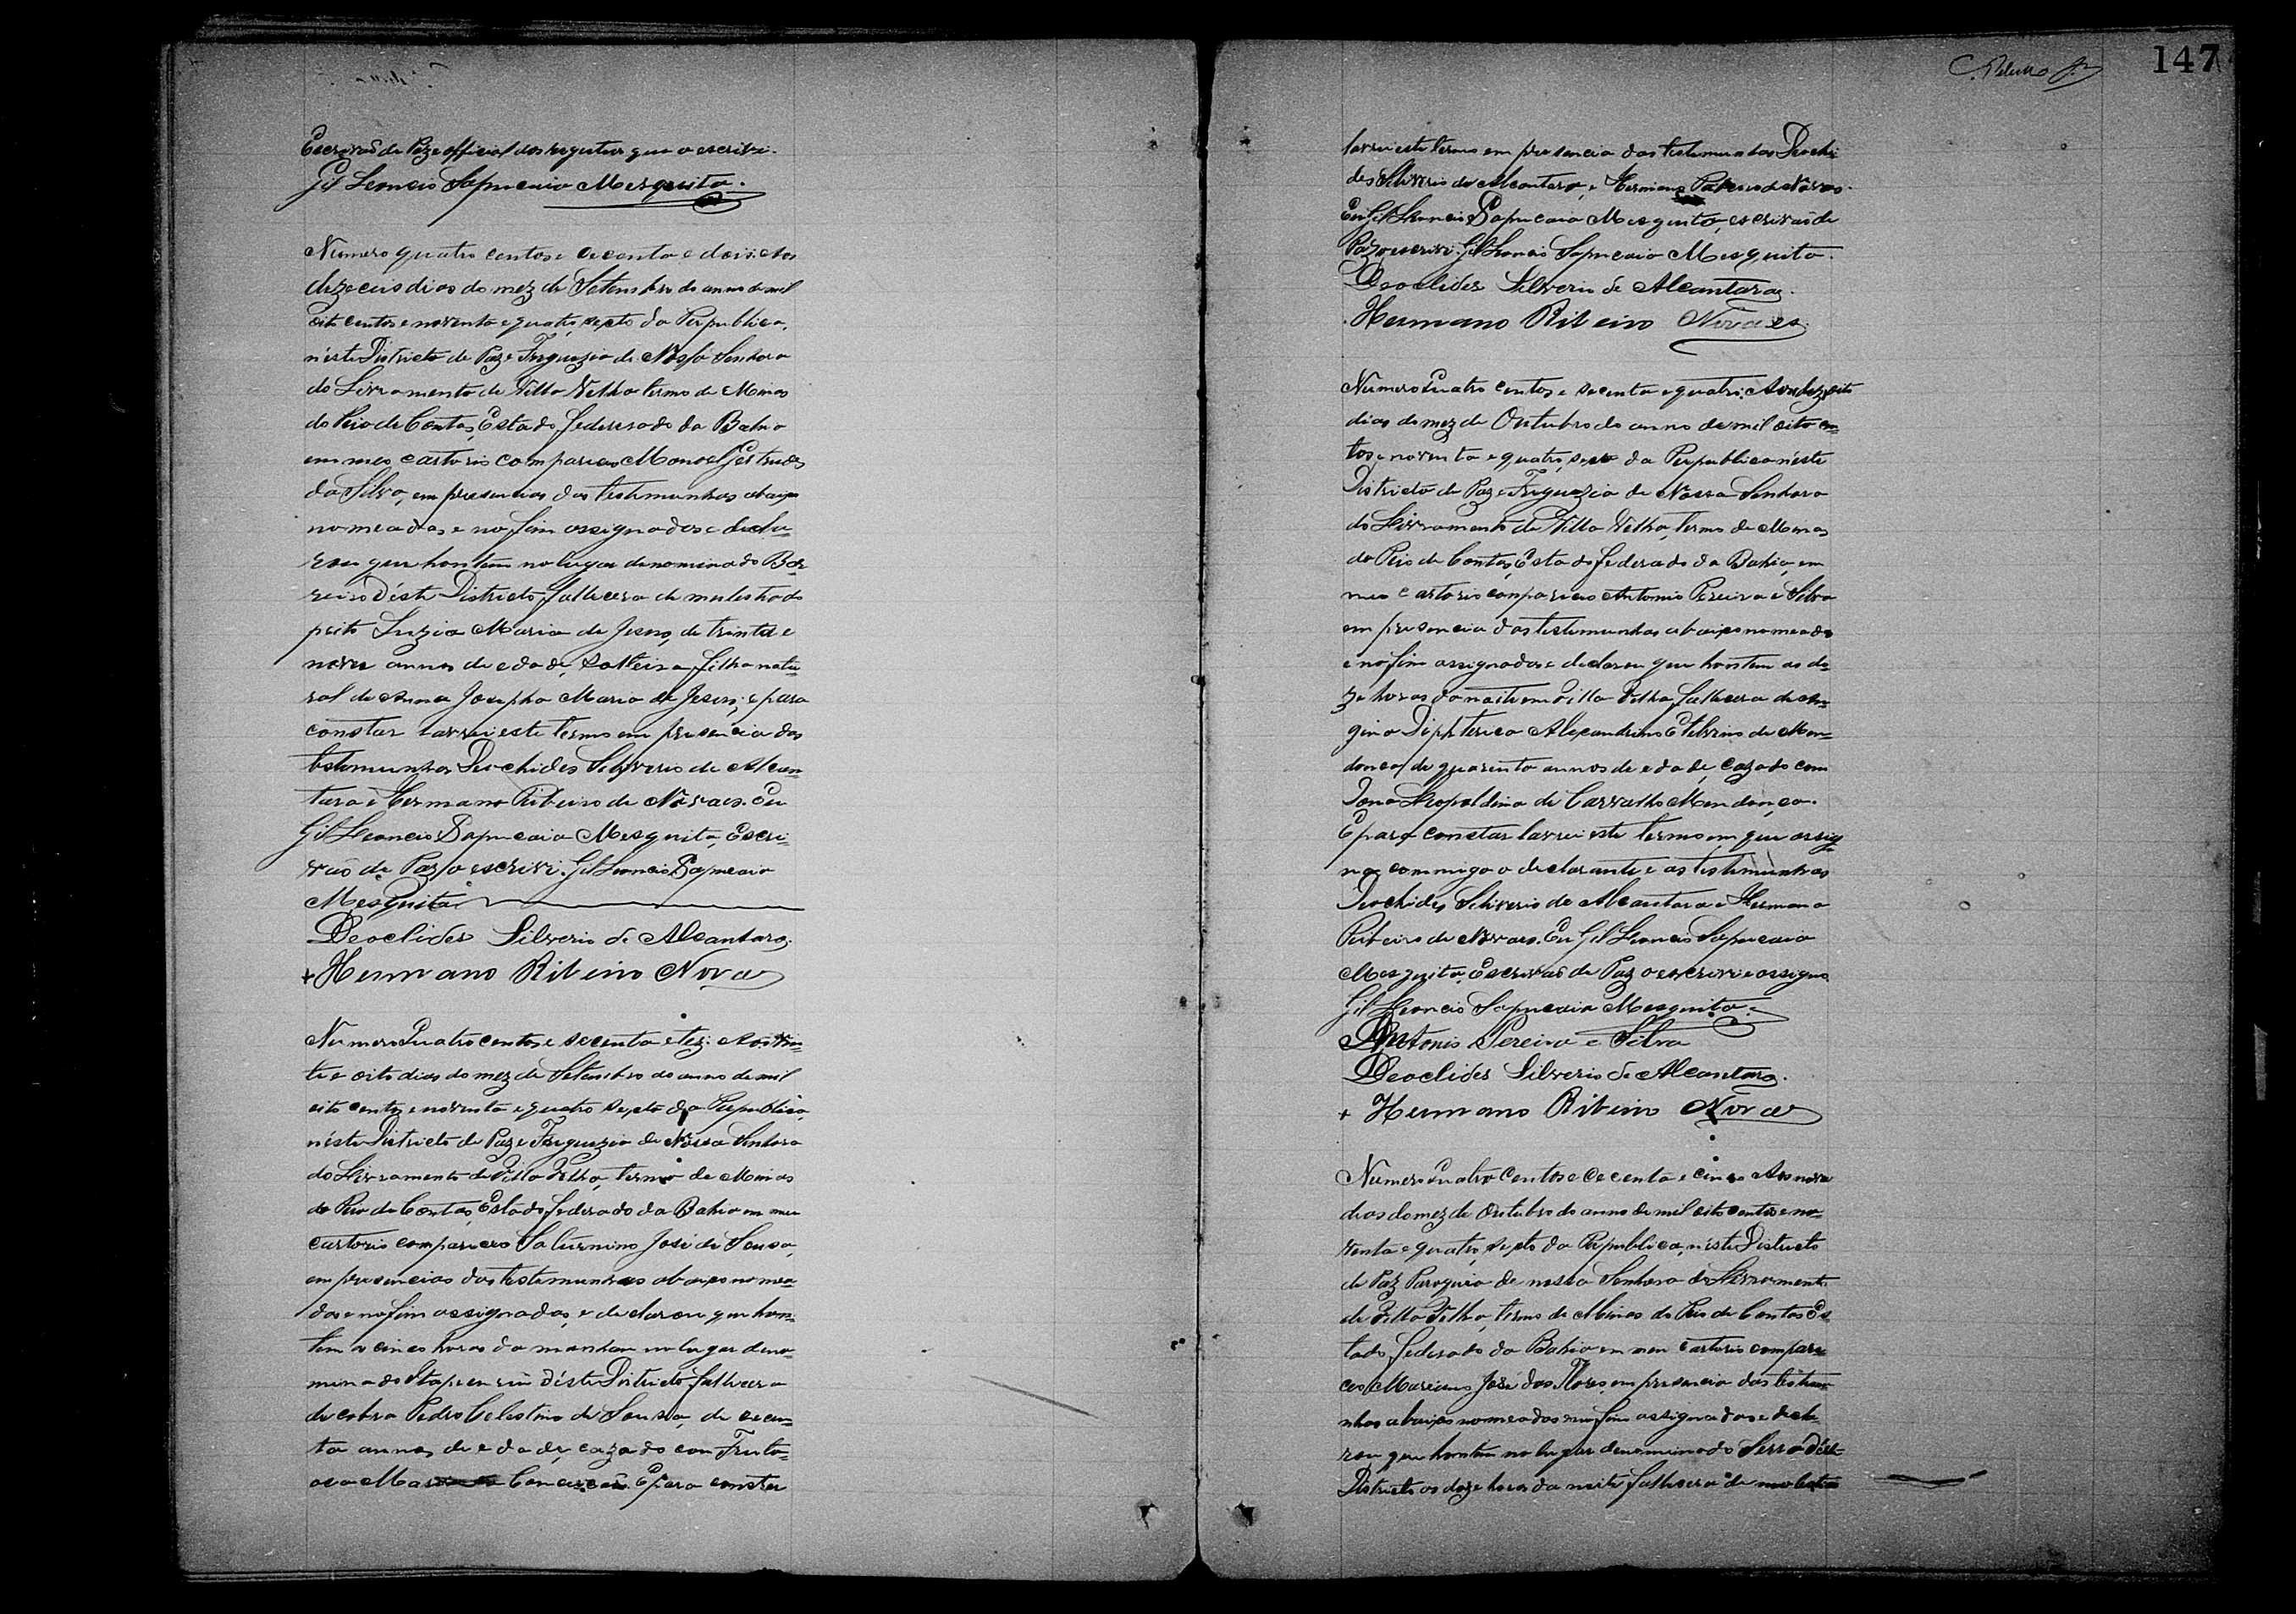 Escrivaõ de Paz e official dos registros que o escrivi.
Gil Leoncio Sapucaia Mesquita.
Numero quatro centos e cecenta e dois: Aos
dezeceis dias do mez de Setembro do anno de mil
oito centos e noventa e quatro, sexto da Republica,
n'este Districto de Paz e Freguezia de Nossa Senhora
do Livramento de Villa Velha termo de Minas
do Rio de Contas, Estado federado da Bahia
em meo cartorio compareceo Manoel Gertrudes
da Silva, em presencias das testemunhas abaixo
nomeadas, e no fim assignados e decla=
rou que hontem no lugar denominado Bar
reiro d'este Districto, fallecera de mulestia do
peito Luzia Maria de Jesus, de trinta e
nove annos de edade, solteira, filha natu=
ral de Anna Josepha Maria de Jesus; e para
constar lavrei este termo em presencia das
testemunhas Deochides Silverio de Alcan
tara e Hermano Ribeiro de Novaes. Eu
Gil Leoncio Sapucaia Mesquita, Escri=
vaõ de Paz o escrivi. Gil Leoncio Sapucaia
Mesquita
Deoclides Silverio de Alcantara.
+ Hermano Ribeiro Novaes
Numero Quatro centos e secenta e tez: Aos vin=
te e oito dias do mez de Setembro do anno de mil
oito centos e noventa e quatro sexto da Republica,
n'este Districto de Paz e Freguezia de Nossa Senhora
do Livramento de Villa Velha, termo de Minas
do Rio de Contas, Estado federado da Bahia em meu
cartorio compareceo Saturnino José de Sousa,
em presencias das testemunhas abaixo nomea
das e no fim assignadas, e declarou que hon=
tem as cinco horas da manham no lugar deno=
minado d'este Districto fallecera
de cobra Pedro Celestino de Sousa, de cecen=
ta annos de edade, cazado com Fruto=
osa Conceicaõ. E para constar
147
lavrei este termo em presencia das testemunhas Deochi
des Silverio de Alcantara, e Hermano de Novaes.
Eu Gil Leoncio Sapucaia Mesquita, escrivaõ de
Paz o escrivi. Gil Leoncio Sapucaia Mesquita.
Deoclides Silverio de Alcantara.
Hermano Ribeiro Novaes.
Numero Quatro centos e secenta e quatro: Aos dezoito
dias do mez de Outubro do anno de mil oito cen=
tos e noventa e quatro, sexto da Republica n'este
Districto de Paz e Freguezia de Nossa Senhora
do Livramento de Villa Velha, termo de Minas
do Rio de Contas, Estado federado da Bahia, em
meu cartorio compareceo Antonio Pereira e Silva
em presencia das testemunhas abaixo nomeadas
e no fim assignadas e declarou que hontem as do=
ze horas da noite em Villa Velha fallecera de An=
gina Diphterica Alexandrino Etelvino de Men=
donca, de quarenta annos de edade, cazado com
Dona Leopoldina de Carvalho Mendonça.
E para constar lavrei este termo em que assig
na commigo o declarante e as testemunhas
Deochides Silverio de Alcantara e Hermano
Ribeiro de Novaes. Eu Gil Leoncio Sapucaia
Mesquita, Escrivaõ de Paz o escrivi e assigno
Gil Leoncio Sapucaia Mesquita.
Antonio Pereira e Silva
Deoclides Silverio de Alcantara.
+ Hermano Ribeiro Novaes
Numero Quatro Centos e Cecenta e cinco Aos nove
dias do mez de Outubro do anno de mil oito centos e no=
venta e quatro, sexto da Republica, n'este Districto
de Paz Paroquia de nossa Senhora do Livramento
de Villa Velha, termo de Minas do Rio de Contas Es
tado federado da Bahia em meu Cartorio compare
ceo Marciano José das Flores, em presencia das testemu
nhas abaixo nomeadas e no fim assignadas e decla
rou que hontem no lugar denominado Serra d'este
Districto as doze horas da noite fallecera de molestia